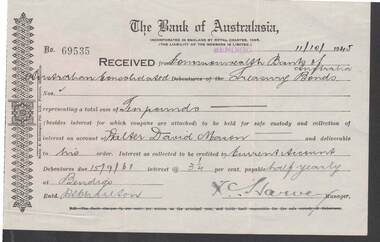 The Bank of Australasia,
INCORPORATED IN ENGLAND BY ROYAL CHARTER, 1835.
(THE LIABILITY OF THE MEMBERS IS LIMITED.)
No. 69535
BENDIGO 11/10/1945
RECEIVED from Commonwealth Bank of Australia
Australian Consolidated Debentures of the Treasury Bonds
Nos.
representing a total sum of Ten pounds
(besides interest for which coupons are attached) to be held for safe custody and collection of
interest on account Walter David Mason and deliverable
to his order. Interest as collected to be credited to Current Account
Debentures due 15/9/61 interest @ 3¼ per cent. payable half yearly
at Bendigo
Entd.
Manager.